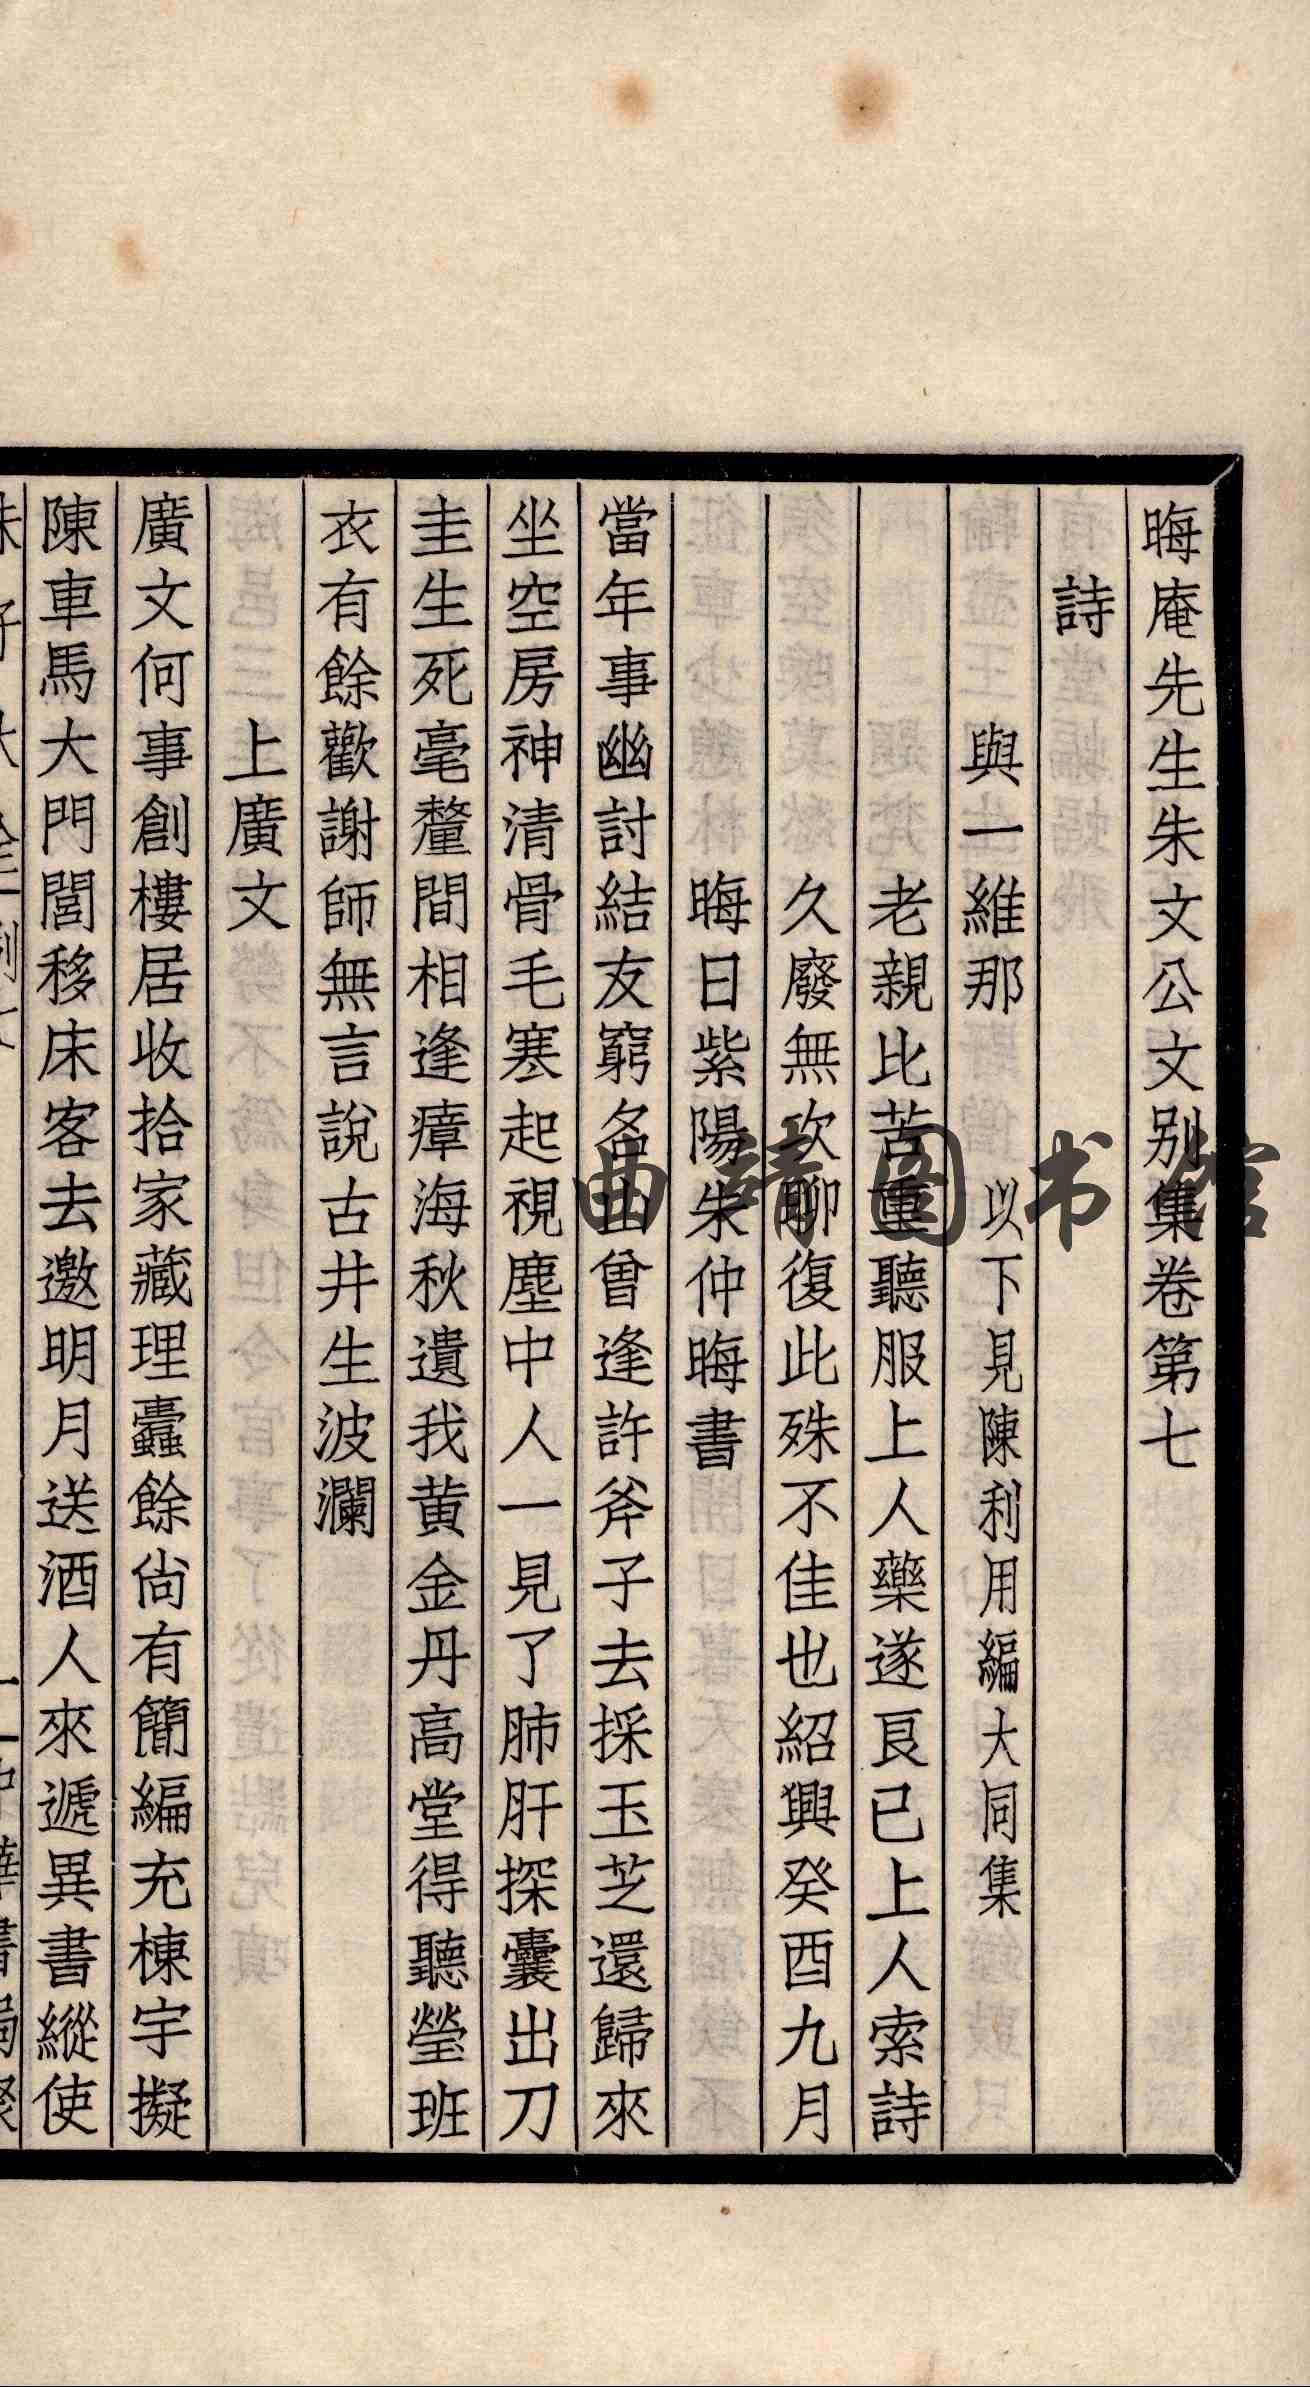 晦庵先生朱文公文别集卷第七
詩
與一維那 以下見陳利用編大同集
老親比苦重聽服上人藥遂良已上人索詩
久廢無次聊復此殊不佳也紹興癸酉九月
晦日紫陽朱仲晦書
當年事幽討結友窮名山曾逢許斧子去採玉芝還歸來
坐空房神清骨毛寒起視塵中人一見了肺肝探囊出刀
圭生死毫釐間相逢瘴海秋遺我黄金丹高堂得聽瑩班
衣有餘歡謝師無言說古井生波瀾
上廣文
廣文何事創樓居收拾家藏理蠹餘尙有簡編充棟宇擬
陳車馬大門閭移床客去邀明月送酒人來遞異書縱使
曲靖图书馆